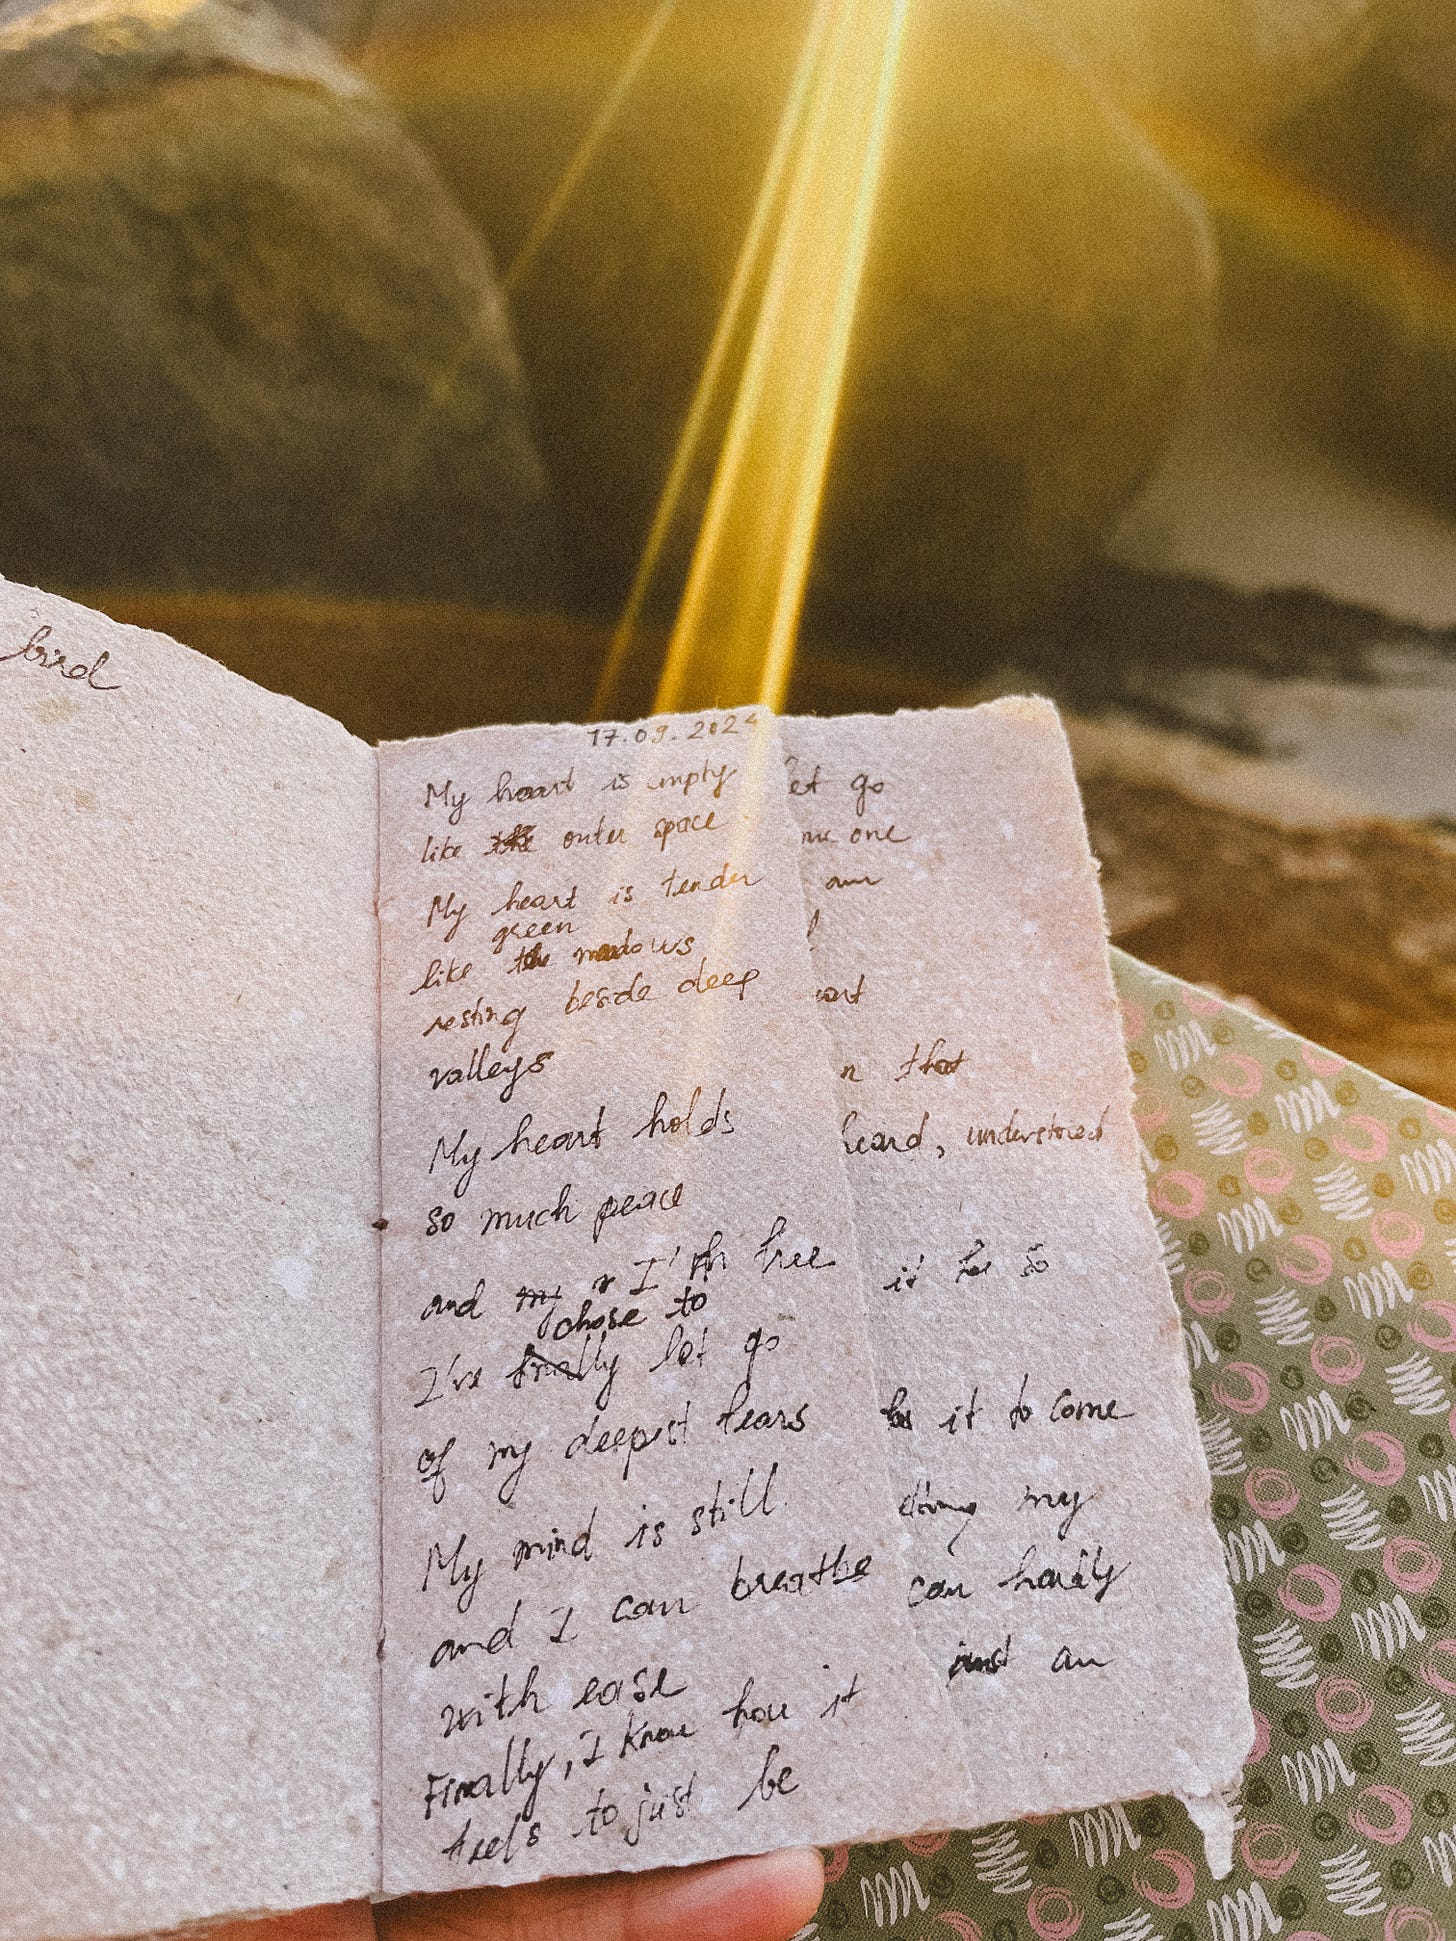 bird
17.09.2024
My heart is empty
like the outer space
My heart is tender
green
like the meadows
resting beside deep
valleys
My heart holds
so much peace
and my I'm free
chose to
I've finally let go
of my deepest fears
My mind is still
and I can breathe
with ease
Finally, I know how it
feels to just be
let go
one
am
that
heard, understood
it be so
it to come
my
can hardly
just an